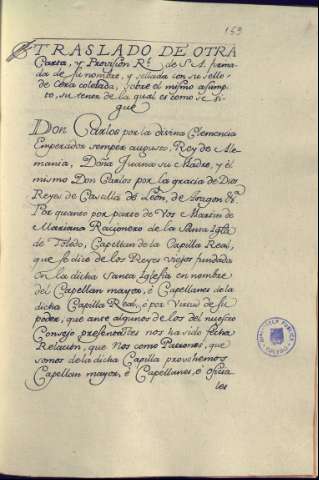 153
TRASLADO DE OTRA
Carta, y Provision Rl. de S. A. firma-
da de su nombre, y sellada con su sello
de Cera colorada, sobre el mismo asump-
to, su tenor de la qual es como se si-
gue
Don Carlos por la divina Clemencia
Emperador semper augusto, Rey de Ale-
mania, Doña Juana su Madre, y el
mismo Don Carlos por la gracia de Dios
Reyes de Castilla de Leon, de Aragon &a.
Por quanto por parte de Vos Martin de
Mariano Racionero de la Santa Iglª
de Toledo, Capellan de la Capilla Real,
que se dice de los Reyes viejos fundada
en la dicha Santa Iglesia en nombre
del Capellan mayor, è Capellanes de la
dicha Capilla Real, è por Virtud de su
poder, que ante algunos de los del nuestro
Consejo presentastes nos ha sido fecha
Relacion, que Nos como Patrones, que
somos de la dicha Capilla provehemos
Capellan mayor, è Capellanes, è oficia-
les
BIBLIOTECA PUBLICA
TOLEDO